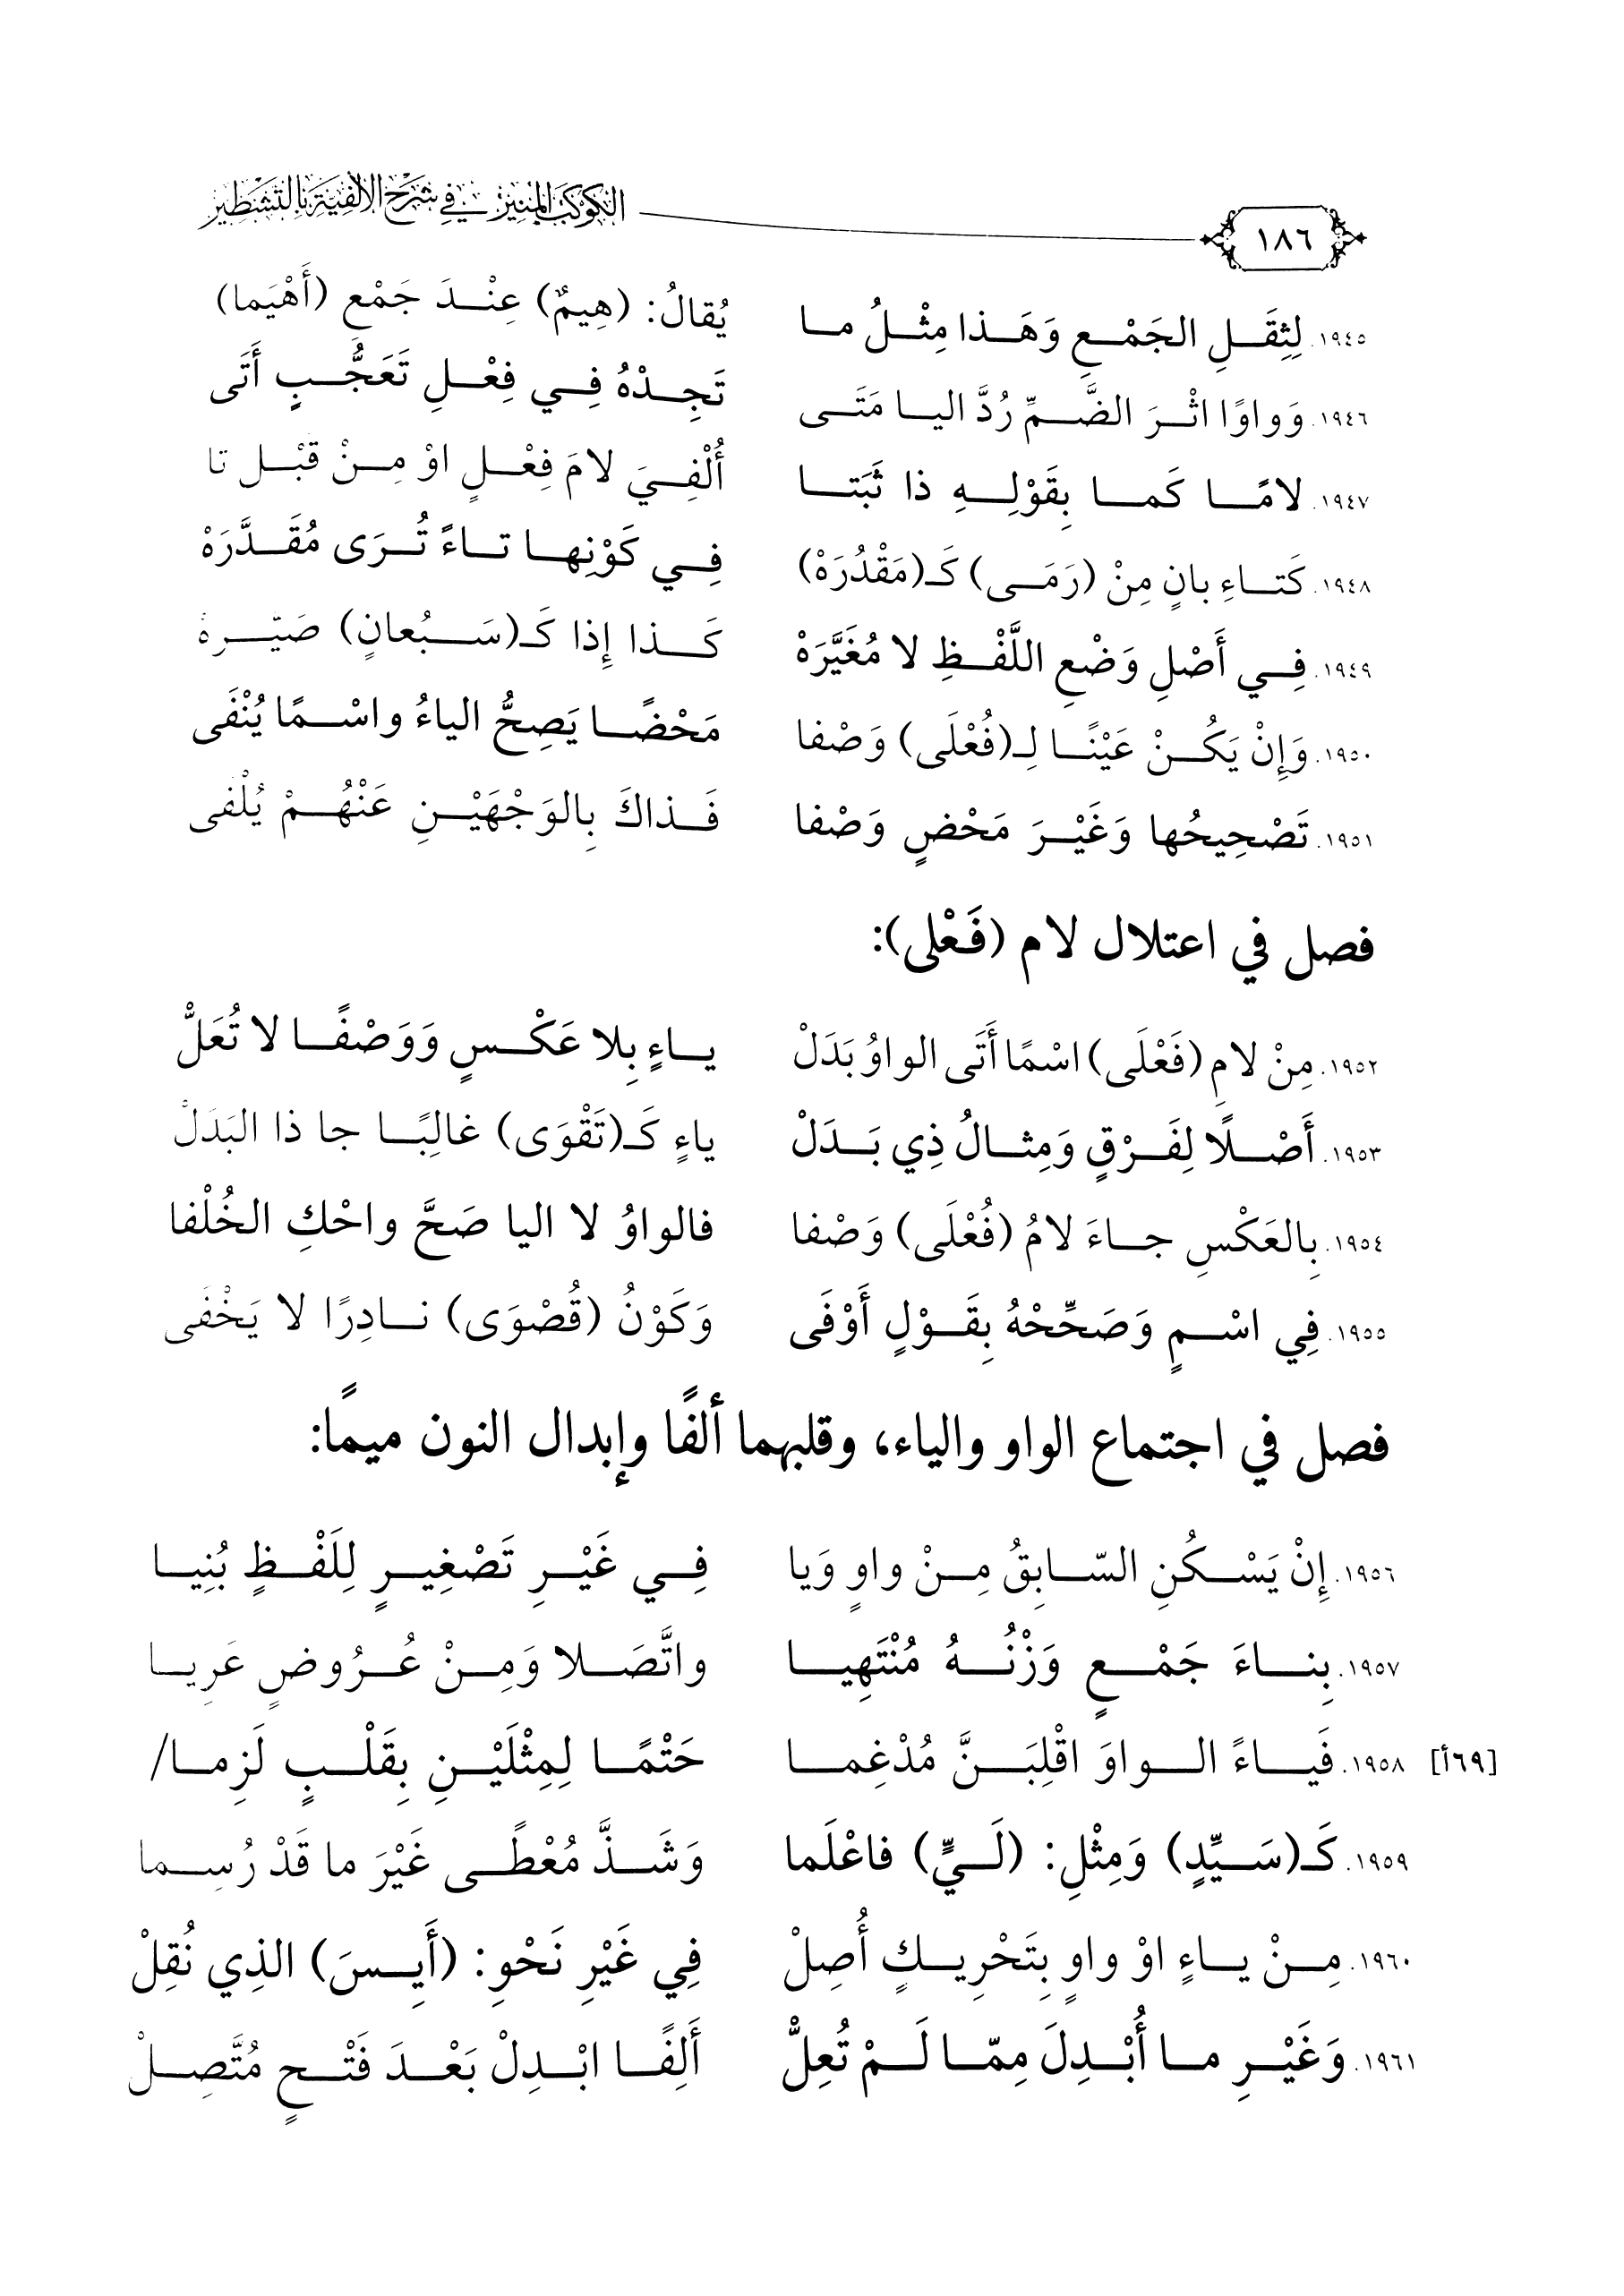 ١٨٦ الكوكب المنير في شرح الألفية بالتشطير
١٩٤٥. لِثِقَلِ الجَمْعِ وَهَذا مِثْلُ ما يُقالُ: (هِيمٌ) عِنْدَ جَمْعِ (أَهْيَما)
١٩٤٦. وَواوًا اثْرَ الضَّمِّ رُدَّ اليا مَتَى تَجِدْهُ فِي فِعْلِ تَعَجُّبٍ أَتَى
١٩٤٧. لامًا كَما بِقَوْلِهِ ذا ثَبَتا أُلْفِيَ لامَ فِعْلٍ اوْ مِنْ قَبْلِ تا
١٩٤٨. كَتاءِ بانٍ مِنْ (رَمَى) كَـ(مَقْدُرَهْ) فِي كَوْنِها تاءً تُرَى مُقَدَّرَهْ
١٩٤٩. فِي أَصْلِ وَضْعِ اللَّفْظِ لا مُغَيَّرَهْ كَذا إِذا كَـ(سَبُعانٍ) صَيَّرهْ
١٩٥٠. وَإِنْ يَكُنْ عَيْنًا لِـ(فُعْلَى) وَصْفا مَحْضًا يَصِحُّ الياءُ واسْمًا يُنْفَى
١٩٥١. تَصْحِيحُها وَغَيْرَ مَحْضٍ وَصْفا فَذاكَ بِالوَجْهَيْنِ عَنْهُمْ يُلْفَى
فصل في اعتلال لام (فَعْلى):
١٩٥٢. مِنْ لامِ (فَعْلَى) اسْمًا أَتَى الواوُ بَدَلْ ياءٍ بِلا عَكْسٍ وَوَصْفًا لا تُعَلُّ
١٩٥٣. أَصْلًا لِفَرْقٍ وَمِثالُ ذِي بَدَلْ ياءٍ كَـ(تَقْوَى) غالِبًا جا ذا البَدَلْ
١٩٥٤. بِالعَكْسِ جاءَ لامُ (فُعْلَى) وَصْفا فالواوُ لا اليا صَحَّ واحْكِ الخُلْفا
١٩٥٥. فِي اسْمٍ وَصَحِّحْهُ بِقَوْلٍ أَوْفَى وَكَوْنُ (قُصْوَى) نادِرًا لا يَخْفَى
فصل في اجتماع الواو والياء، وقلبهما ألفًا وإبدال النون ميمًا:
١٩٥٦. إِنْ يَسْكُنِ السّابِقُ مِنْ واوٍ وَيا فِي غَيْرِ تَصْغِيرٍ لِلَفْظٍ بُنِيا
١٩٥٧. بِناءَ جَمْعٍ وَزْنُهُ مُنْتَهِيا واتَّصَلا وَمِنْ عُرُوضٍ عَرِيا
[٦٩أ] ١٩٥٨. فَياءً الواوَ اقْلِبَنَّ مُدْغِما حَتْمًا لِمِثْلَيْنِ بِقَلْبٍ لَزِما/
١٩٥٩. كَـ(سَيِّدٍ) وَمِثْلِ: (لَيٍّ) فاعْلَما وَشَذَّ مُعْطًى غَيْرَ ما قَدْ رُسِما
١٩٦٠. مِنْ ياءٍ اوْ واوٍ بِتَحْرِيكٍ أُصِلْ فِي غَيْرِ نَحْوِ: (أَيِسَ) الذِي نُقِلْ
١٩٦١. وَغَيْرِ ما أُبْدِلَ مِمّا لَمْ تُعِلُّ أَلِفًا ابْدِلْ بَعْدَ فَتْحٍ مُتَّصِلْ